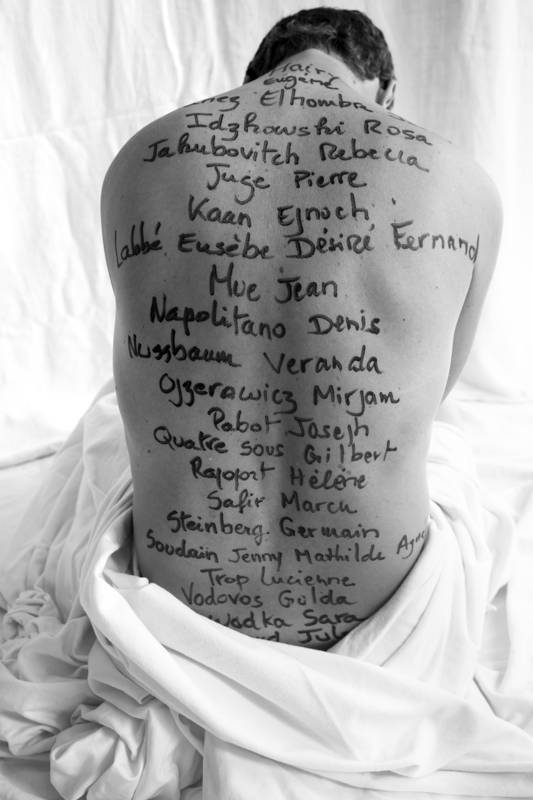 Mairy
Eugène
Elhombra
Idzkowski Rosa
Jakubovitch Rebecca
Juge Pierre
Kaan Ejnoch
Labbé Eusèbe Désiré Fernand
Mue Jean
Napolitano Denis
Nussbaum Veranda
Ojzerawicz Mirjam
Pabot Joseph
Quatre sous Gilbert
Rapoport Hélène
Safir Marcu
Steinberg. Germain
Soudain Jenny Mathilde
Trop Lucienne
Vodovos Golda
Sara